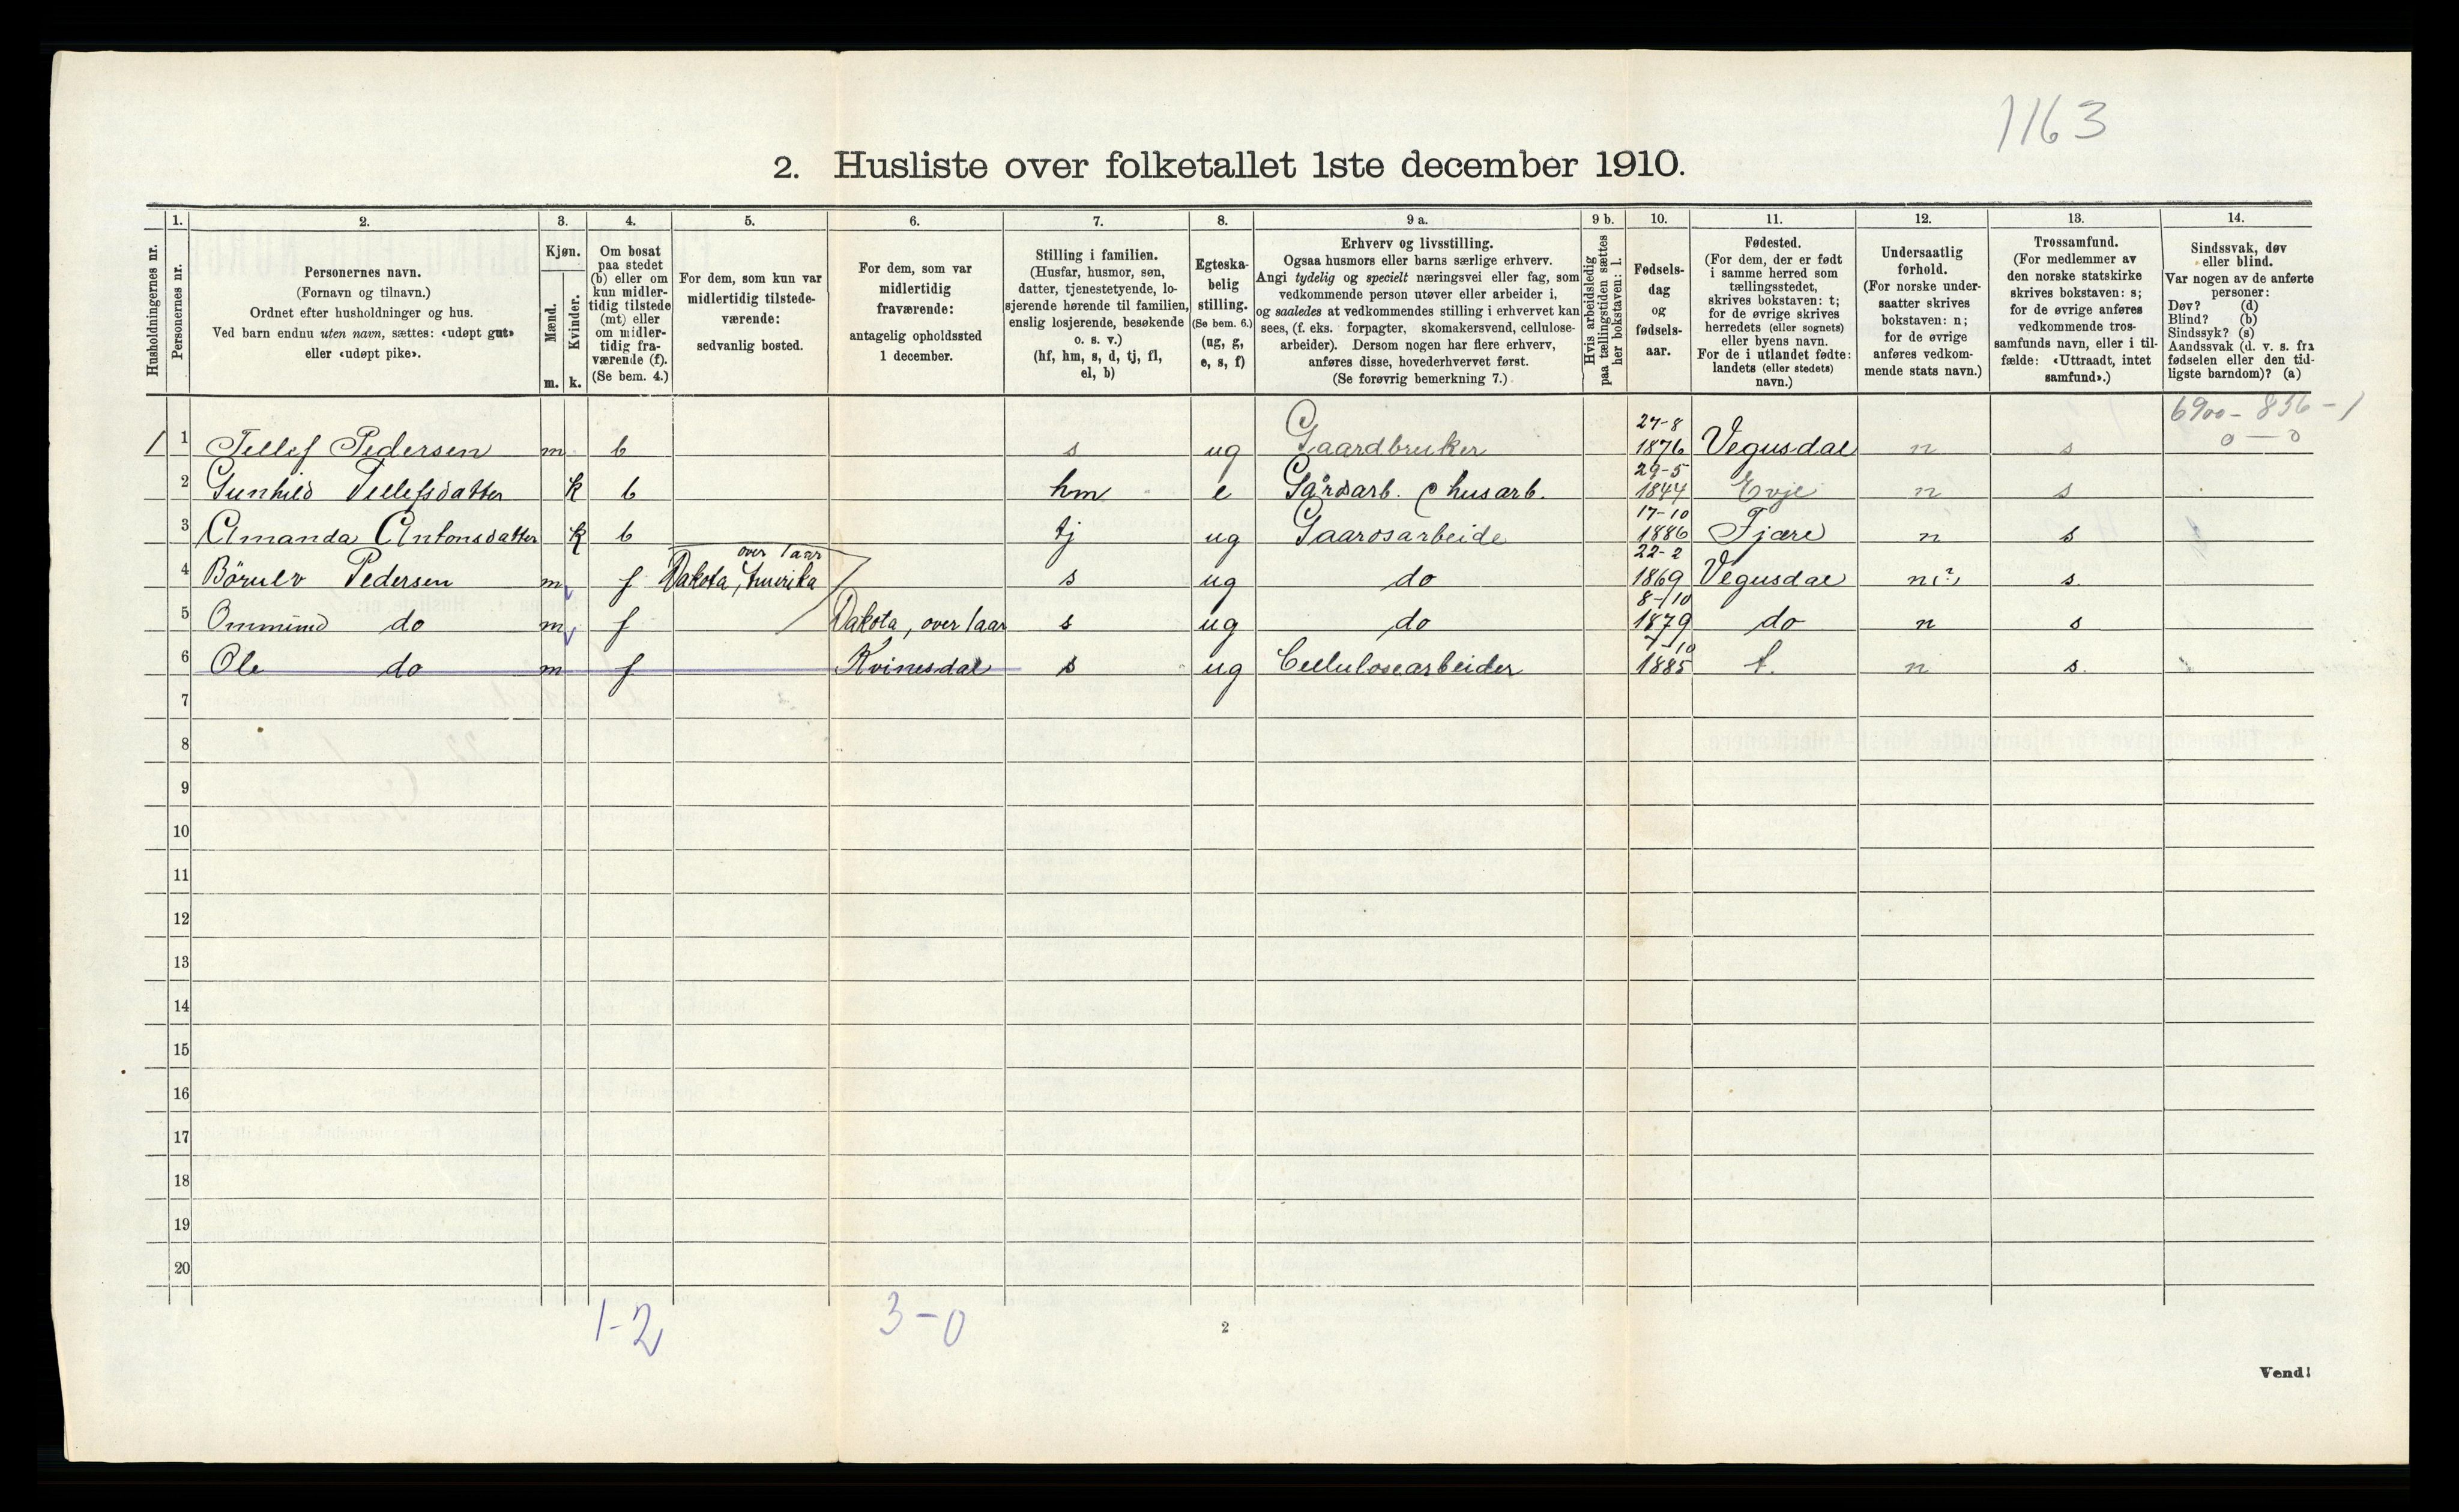 1163
2. Husliste over folketallet 1ste december 1910.
Husholdningernes nr.
1.
Personernes nr.
2.
Personernes navn.
(Fornavn og tilnavn.)
Ordnet efter husholdninger og hus.
Ved barn endnu uten navn, sættes: «udøpt gut»
eller «udøpt pike».
3.
Kjøn.
Mænd.
Kvinder.
m. k.
4.
Om bosat
paa stedet
(b) eller om
kun midler-
tidig tilstede
(mt) eller
om midler-
tidig fra-
værende (f).
(Se bem. 4.)
5.
For dem, som kun var
midlertidig tilstede-
værende:
sedvanlig bosted.
6.
For dem, som var
midlertidig
fraværende:
antagelig opholdssted
1 december.
7.
Stilling i familien.
(Husfar, husmor, søn,
datter, tjenestetyende, lo-
sjerende hørende til familien,
enslig losjerende, besøkende
o. s. v.)
(hf, hm, s, d, tj, fl,
el, b)
8.
Egteska-
belig
stilling.
(Se bem. 6.)
(ug, g,
e, s, f)
9 a.
Erhverv og livsstilling.
Ogsaa husmors eller barns særlige erhverv.
Angi tydelig og specielt næringsvei eller fag, som
vedkommende person utøver eller arbeider i,
og saaledes at vedkommendes stilling i erhvervet kan
sees, (f. eks. forpagter, skomakersvend, cellulose-
arbeider). Dersom nogen har flere erhverv,
anføres disse, hovederhvervet først.
(Se forøvrig bemerkning 7.)
9 b.
Hvis arbeidsledig
paa tællingstiden sættes
her bokstaven: l.
10.
Fødsels-
dag
og
fødsels-
aar.
11.
Fødested.
(For dem, der er født
i samme herred som
tællingsstedet,
skrives bokstaven: t;
for de øvrige skrives
herredets (eller sognets)
eller byens navn.
For de i utlandet fødte:
landets (eller stedets)
navn.)
12.
Undersaatlig
forhold.
(For norske under-
saatter skrives
bokstaven: n;
for de øvrige
anføres vedkom-
mende stats navn.)
13.
Trossamfund.
(For medlemmer av
den norske statskirke
skrives bokstaven: s;
for de øvrige anføres
vedkommende tros-
samfunds navn, eller i til-
fælde: «Uttraadt, intet
samfund».)
14.
Sindssvak, døv
eller blind.
Var nogen av de anførte
personer:
Døv? (d)
Blind? (b)
Sindssyk? (s)
Aandssvak (d. v. s. fra
fødselen eller den tid-
ligste barndom)? (a)
6900 - 836 - 1
0 — 0
1 1 Tellef Pedersen m b s ug Gaardbruker 27-8 1876 Vegusdal n s
2 Gunhild Tellefsdatter k b hm e Gårdsarb. & husarb. 29-5 1844 Evje n s
3 Amanda Antonsdatter k b tj ug Gaardsarbeide 17-10 1886 Fjære n s
4 Börulv Pedersen m f Dakota, Amerika over 1 aar s ug do 22-2 1869 Vegusdal n(?) s.
5 Ommund do m f Dakota, over 1 aar s ug do 8-10 1879 do n s
6 Ole do m f Kvinesdal s ug Cellulosearbeider 7-10 1885 t. n s.
7
8
9
10
11
12
13
14
15
16
17
18
19
20
1-2 3-0
2
Vend!